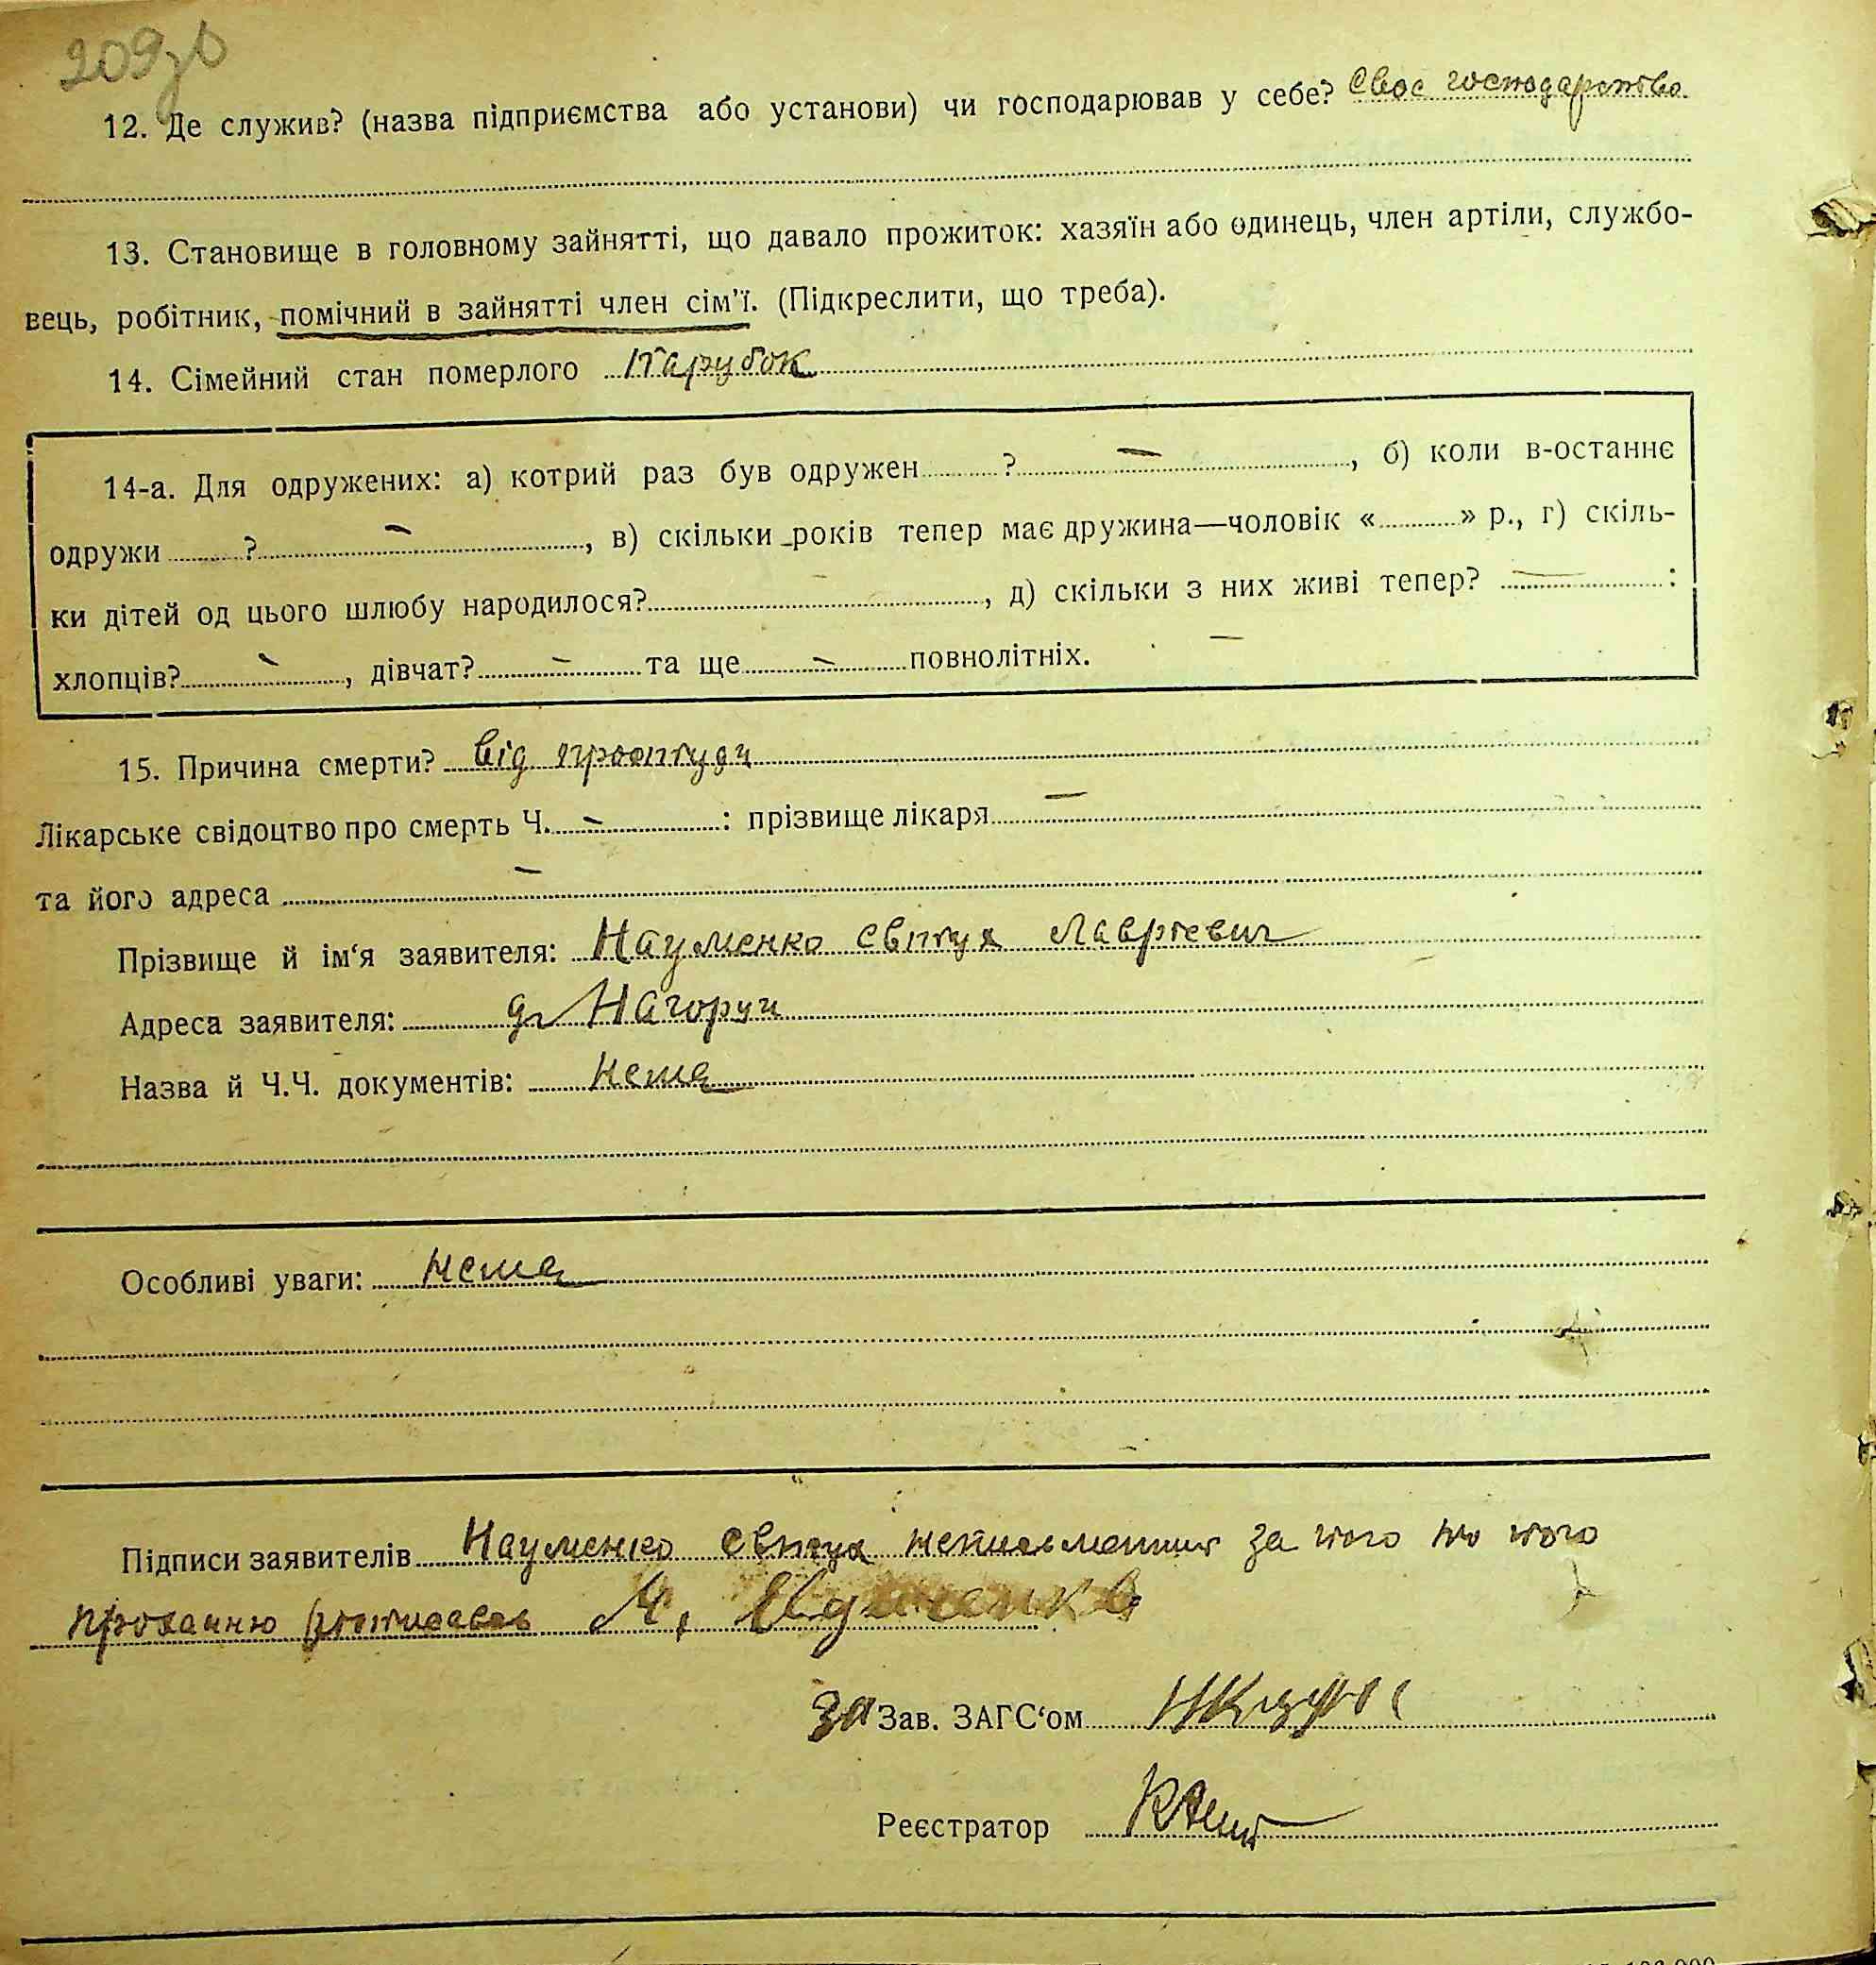 209зв
12. Де служив? (назва підприємства або установи) чи господарював у себе? Своє господарство
13. Становище в головному зайнятті, що давало прожиток: хазяїн або одинець, член артіли, службо-
вець, робітник, помічний в зайнятті член сім'ї. (Підкреслити, що треба).
14. Сімейний стан померлого Парубок
14-а. Для одружених: а) котрий раз був одружен ? —, б) коли в-останнє
одружи ? —, в) скільки років тепер має дружина—чоловік « » р., г) скіль-
ки дітей од цього шлюбу народилося? , д) скільки з них живі тепер? — :
хлопців? —, дівчат? — та ще — повнолітніх.
15. Причина смерти? від простуди
Лікарське свідоцтво про смерть Ч. — : прізвище лікаря —
та його адреса —
Прізвище й ім'я заявителя: Науменко Євтух Лаврієвич
Адреса заявителя: Нагорун
Назва й Ч.Ч. документів: нема
Особливі уваги: нема
Підписи заявителів Науменко Євтух неписьменний за його по його
проханню росписавсь
за Зав. ЗАГС'ом
Реєстратор